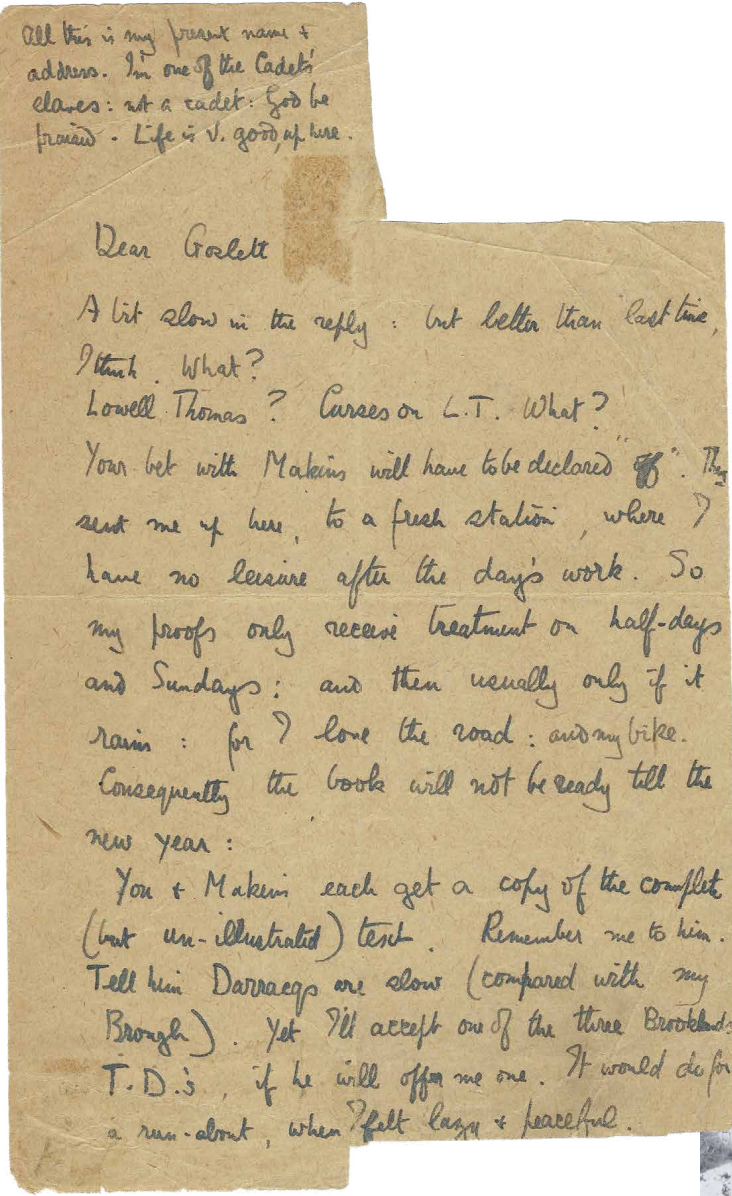 All this is my present name +
address. I'm one of the Cadets'
slaves: not a cadet: God be
praised. Life is v. good, up here.
Dear Goslett
A bit slow in the reply: but better than last time,
I think. What?
Lowell Thomas? Curses on L.T. What?
Your bet with Makins will have to be declared "off". They
sent me up here, to a fresh station, where I
have no leisure after the day's work. So
my proofs only receive treatment on half-days
and Sundays: and then usually only if it
rains: for I love the road: and my bike.
Consequently the book will not be ready till the
new year:
You + Makins each get a copy of the complete
(but un-illustrated) text. Remember me to him.
Tell him Darracqs are slow (compared with my
Brough). Yet I'll accept one of the three Brooklands
T.D.'s, if he will offer me one. It would do for
a run-about, when I felt lazy + peaceful.